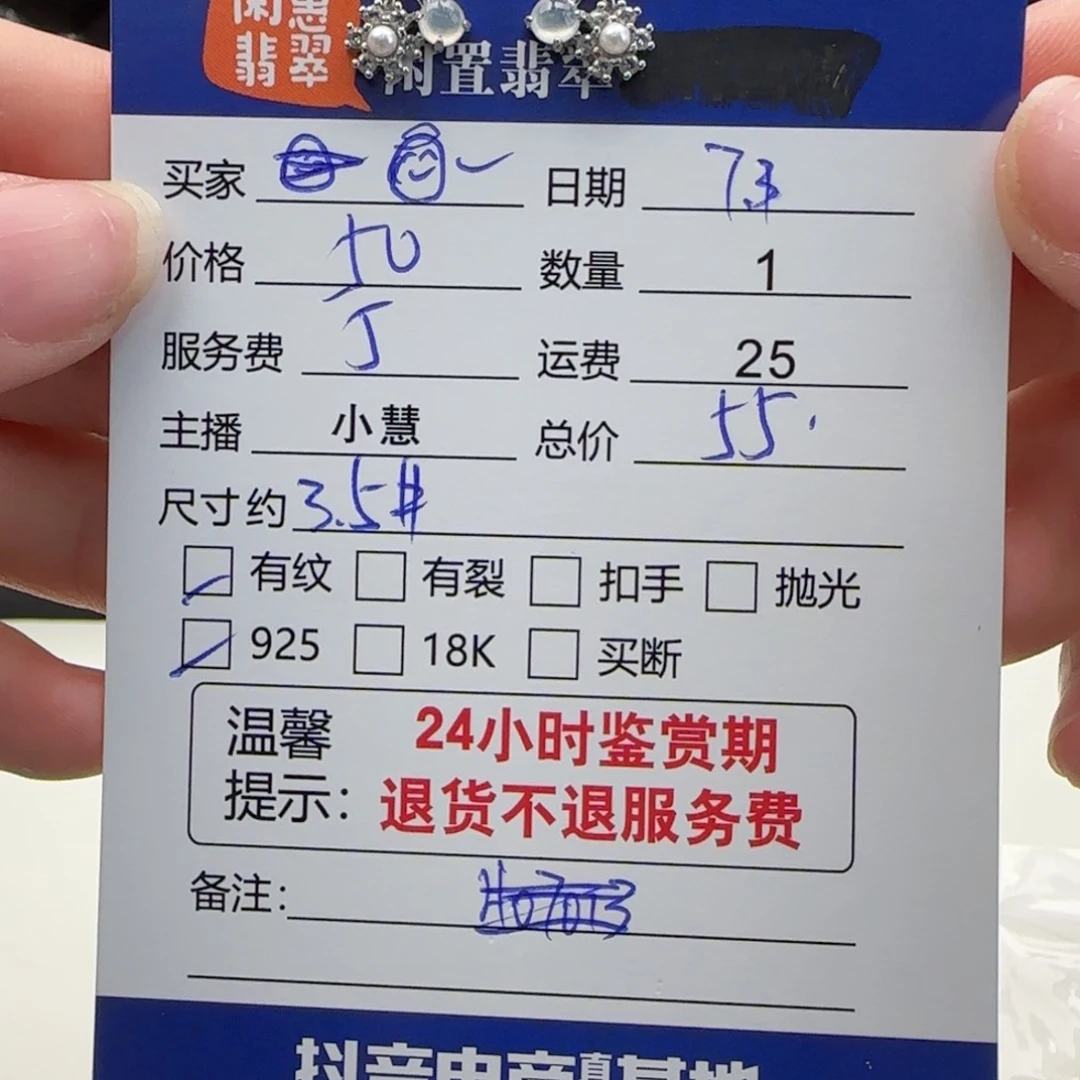 闲惠
翡翠
闲置翡翠
买家 日期 7.3
价格 50 数量 1
服务费 5 运费 25
主播 小慧 总价 55.
尺寸约 3.5#
有纹 有裂 扣手 抛光
925 18K 买断
温馨 24小时鉴赏期
提示: 退货不退服务费
备注:
抖音电商直播基地